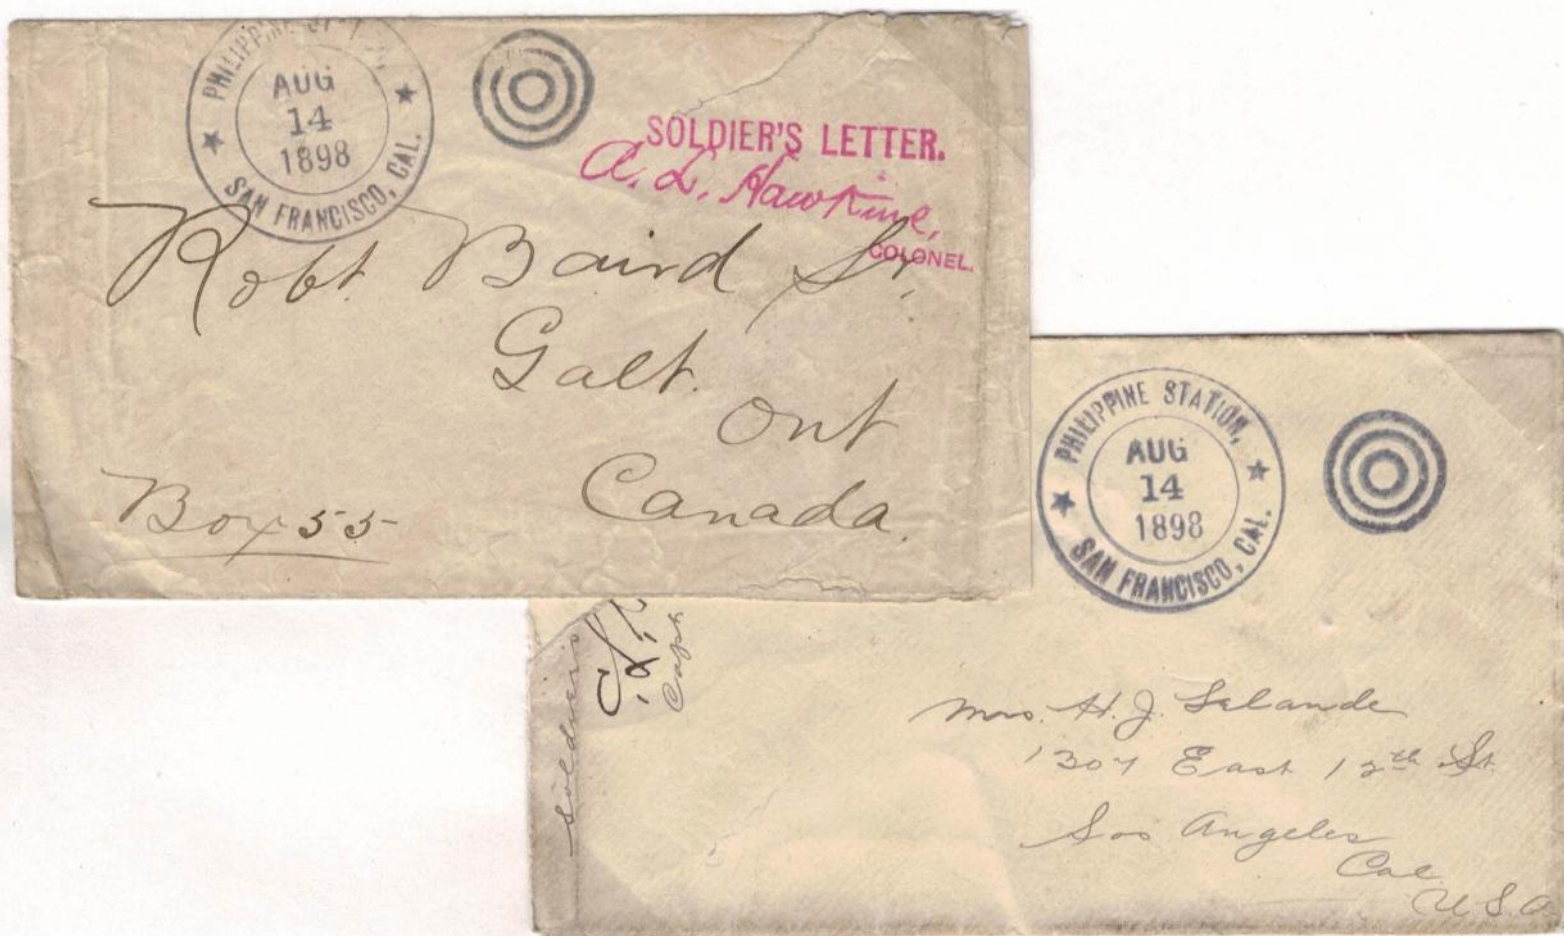 PHILIPPINE STA'N,
AUG
14
1898
SAN FRANCISCO, CAL.
SOLDIER'S LETTER.
A. L. Hawkins,
COLONEL.
Robt. Baird Sr.
Galt.
Ont
Canada.
Box 55
PHILIPPINE STATION,
AUG
14
1898
SAN FRANCISCO, CAL.
Soldier's
Capt
Mrs. H. J. Lelande
1307 East 12th St.
Los Angeles
Cal
U.S.A